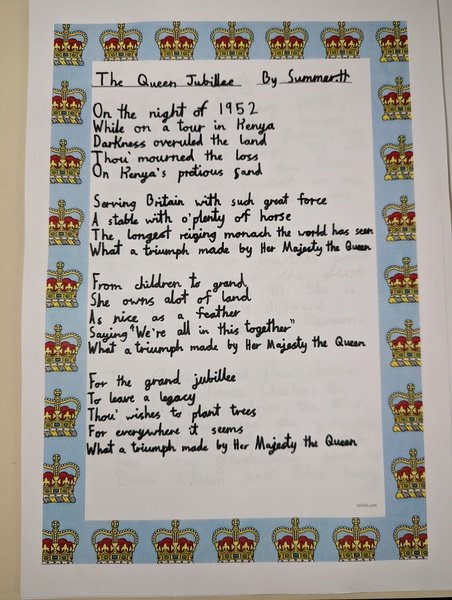 The Queen Jubillee By Summer H
On the night of 1952
While on a tour in Kenya
Darkness overuled the land
Thou' mourned the loss
On Kenya's pretious sand
Serving Britain with such great force
A stable with o'plenty of horse
The longest reiging monach the world has seen
What a triumph made by Her Majesty the Queen
From children to grand
She owns alot of land
As nice as a feather
Saying "We're all in this together"
What a triumph made by Her Majesty the Queen
For the grand jubillee
To leave a legacy
Thou' wishes to plant trees
For everywhere it seems
What a triumph made by Her Majesty the Queen